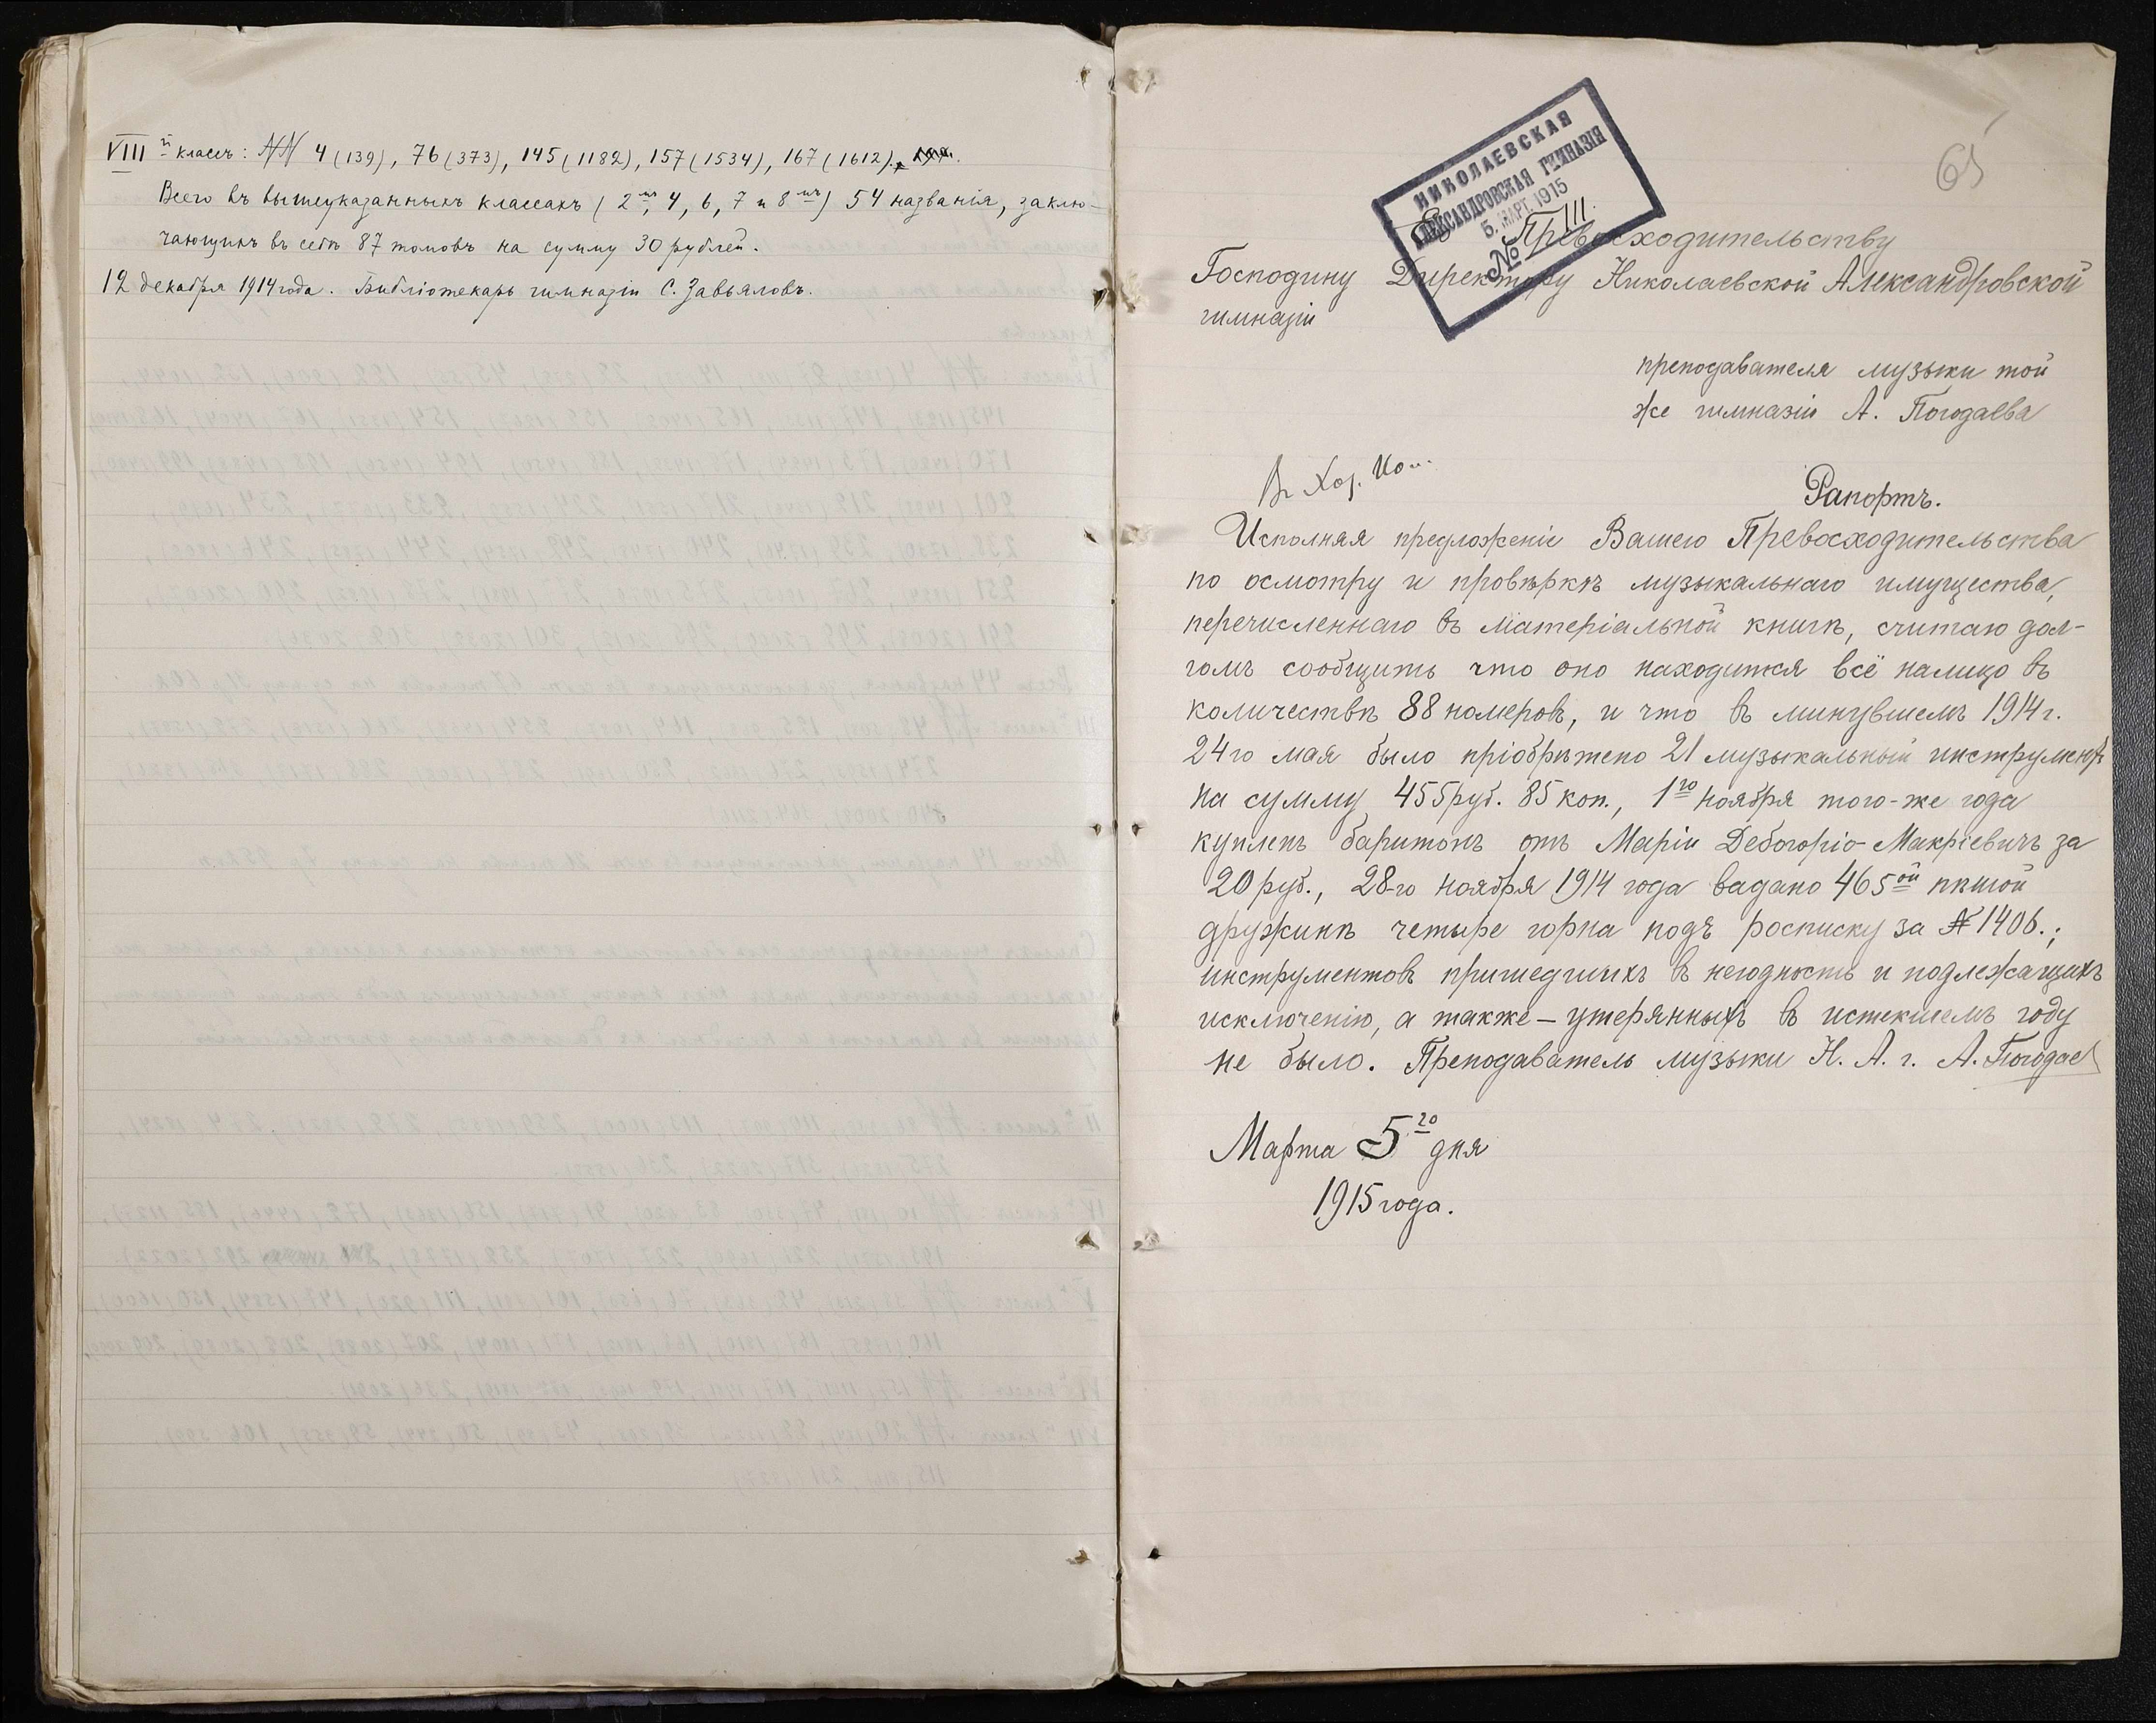 VIII й классъ: NN 4 (139), 76 (373), 145 (1182), 157 (1534), 167 (1612).
Всего въ вышеуказанныхъ классахъ (2мъ, 4, 6, 7 и 8мъ) 54 названія, заклю-
чающихъ въ себѣ 87 томовъ на сумму 30 рублей.
12 декабря 1914 года. Библіотекарь гимназіи С. Завьяловъ.
65
НИКОЛАЕВСКАЯ
АЛЕКСАНДРОВСКАЯ ГИМНАЗІЯ
5. МАРТ. 1915
№ III.
Его Превосходительству
Господину Директору Николаевской Александровской
гимназіи
преподавателя музыки той
же гимназіи А. Погодаева
Въ Хоз. Ко...
Рапортъ.
Исполняя предложеніе Вашего Превосходительства
по осмотру и провѣркѣ музыкальнаго имущества,
перечисленнаго въ матеріальной книгѣ, считаю дол-
гомъ сообщить что оно находится всё налицо въ
количествѣ 88 номеровъ, и что въ минувшемъ 1914 г.
24го мая было пріобрѣтено 21 музыкальный инструментъ
на сумму 455 руб. 85 коп., 1го ноября того-же года
купленъ баритонъ отъ Маріи Дебогоріо-Макріевичъ за
20 руб., 28-го ноября 1914 года вадано 465ой пѣшой
дружинѣ четыре горна подъ росписку за N 1406.;
инструментовъ пришедшихъ въ негодность и подлежащихъ
исключенію, а также – утерянныхъ въ истекшемъ году
не было. Преподаватель музыки Н. А. г. А. Погодаев
Марта 5го дня
1915 года.